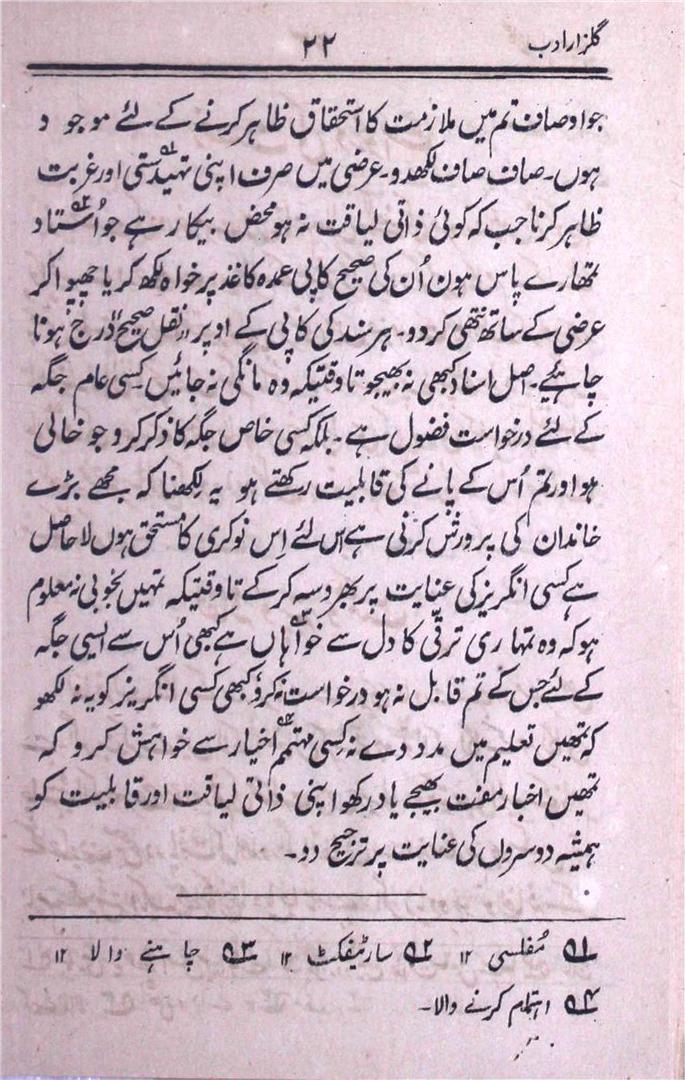 گلزار ادب
۲۲
جو اوصاف تم میں ملازمت کا استحقاق ظاہر کرنے کے لئے موجو د
ہوں۔ صاف صاف لکھدو۔ عرضی میں صرف اپنی تہیدستی۱ اور غربت
ظاہر کرنا جب کہ کوئی ذاتی لیاقت نہ ہو محض بیکار ہے جو اُستاد۲
تمھارے پاس ہون اُن کی صحیح کاپی عمدہ کاغذ پر خواہ لکھ کر یا چھپوا کر
عرضی کے ساتھ نتھی کردو۔ ہر سند کی کاپی کے اوپر "نقل صحیح" درج ہونا
چاہئیے۔ اصل اسناد کبھی نہ بھیجو تاوقتیکہ وہ مانگی نہ جائیں کسِی عام جگہ
کے لئے درخواست فضول ہے۔ بلکہ کسی خاص جگہ کا ذکر کرو جو خالی
ہو اور تم اُس کے پانے کی قابلیت رکھتے ہو یہ لکِھنا کہ مجھے بڑے
خاندان کی پرورش کرنی ہے اس لئے اِس نوکری کا مستحق ہوں لا حاصل
ہے کسی انگریز کی عنایت پر بھروسہ کرکے تاوقتیکہ تمہیں بخوبی نہ معلوم
ہو کہ وہ تمہاری ترقّی کا دل سے خواہاں۳ ہے کبھی اُس سے ایسی جگہ
کے لئے جس کے تم قابل نہ ہو درخواست نہ کرو کبھی کسی انگریز کو یہ نہ لکھو
کہ تمھیں تعلیم میں مدد دے نہ کسِی مہتمم۴ اخبار سے خواہش کرو کہ
تمھیں اخبار مفت بھیجے یاد رکھو اپنی ذاتی لیاقت اور قابلیت کو
ہمیشہ دوسروں کی عنایت پر ترجیح دو۔
۱ مُفلسی ۱۲ ۲ سارٹیفکٹ ۱۲ ۳ چاہنے والا ۱۲
۴ اہتمام کرنے والا۔